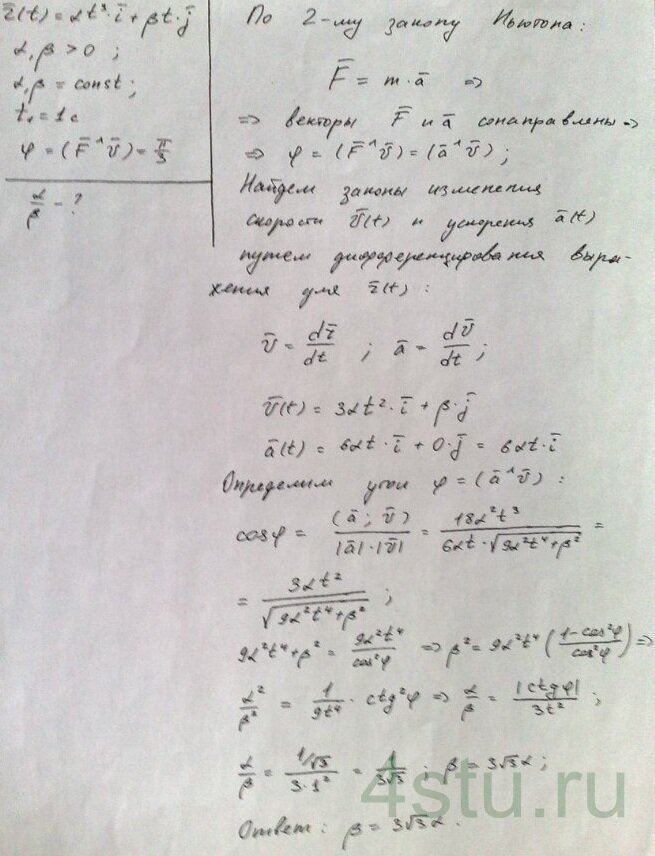 r̄(t) = αt³·ī + βt·j̄
α, β > 0 ;
α, β = const ;
t₁ = 1 c
φ = (F̄ ^ v̄) = π/3
α/β - ?
По 2-му закону Ньютона:
F̄ = m·ā ⇒
⇒ векторы F̄ и ā сонаправлены ⇒
⇒ φ = (F̄ ^ v̄) = (ā ^ v̄) ;
Найдем законы изменения
скорости v̄(t) и ускорения ā(t)
путем дифференцирования выра-
жения для r̄(t) :
v̄ = dr̄/dt ; ā = dv̄/dt ;
v̄(t) = 3αt²·ī + β·j̄
ā(t) = 6αt·ī + 0·j̄ = 6αt·ī
Определим угол φ = (ā ^ v̄) :
cosφ = (ā ; v̄)/(|ā|·|v̄|) = 18α²t³/(6αt·√(9α²t⁴+β²)) =
= 3αt²/√(9α²t⁴+β²) ;
9α²t⁴+β² = 9α²t⁴/cos²φ ⇒ β² = 9α²t⁴((1-cos²φ)/cos²φ) ⇒
α²/β² = 1/9t⁴ · ctg²φ ⇒ α/β = |ctgφ|/3t² ;
α/β = (1/√3)/(3·1²) = 1/(3√3) ; β = 3√3α ;
Ответ: β = 3√3α.
4stu.ru